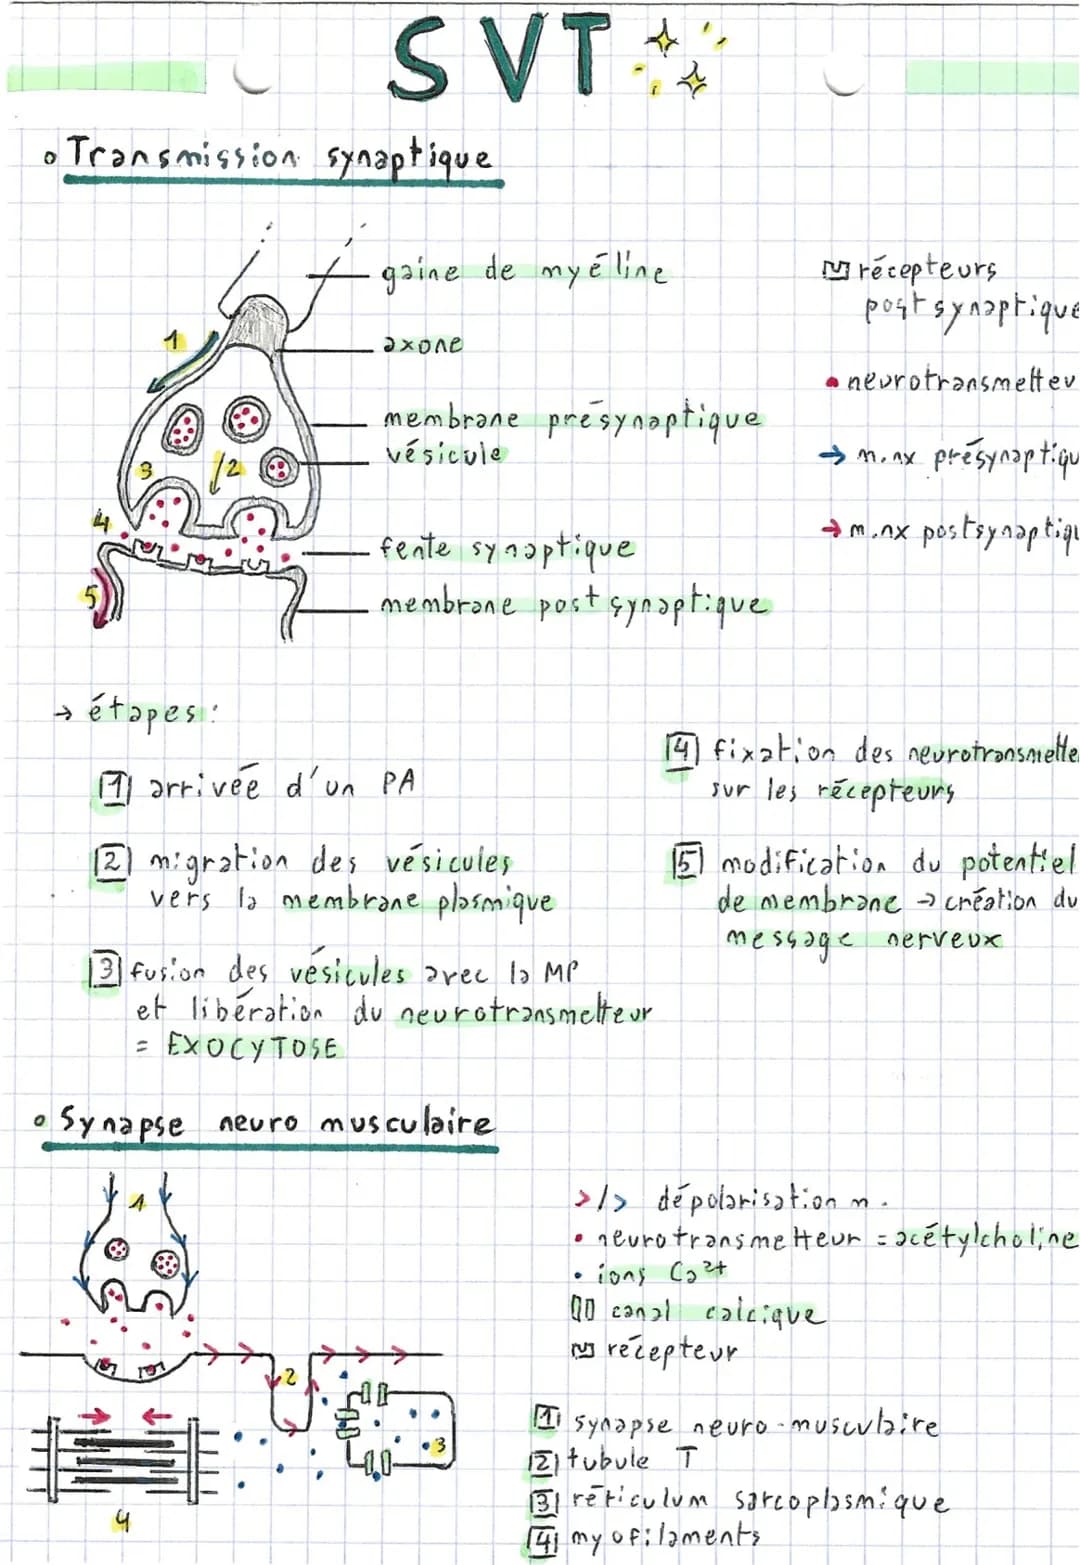 SVT
Transmission synaptique
gaine de myéline
axone
membrane présynaptique
vésicule
fente synaptique
membrane postsynaptique
récepteurs
postsynaptique
• neurotransmetteu
→ m.nx présynaptiqu
→ m.nx postsynaptiqu
1
2
3
4
5
→ étapes :
1 arrivée d'un PA
2 migration des vésicules
vers la membrane plasmique
3 fusion des vésicules avec la MP
et libération du neurotransmetteur
= EXOCYTOSE
4 fixation des neurotransmette
sur les récepteurs
5 modification du potentiel
de membrane → création du
message nerveux
Synapse neuro musculaire
1
2
3
4
>/> dépolarisation m.
• neurotransmetteur = acétylcholine
• ions Ca²⁺
canal calcique
récepteur
1 synapse neuro-musculaire
2 tubule T
3 réticulum sarcoplasmique
4 myofilaments